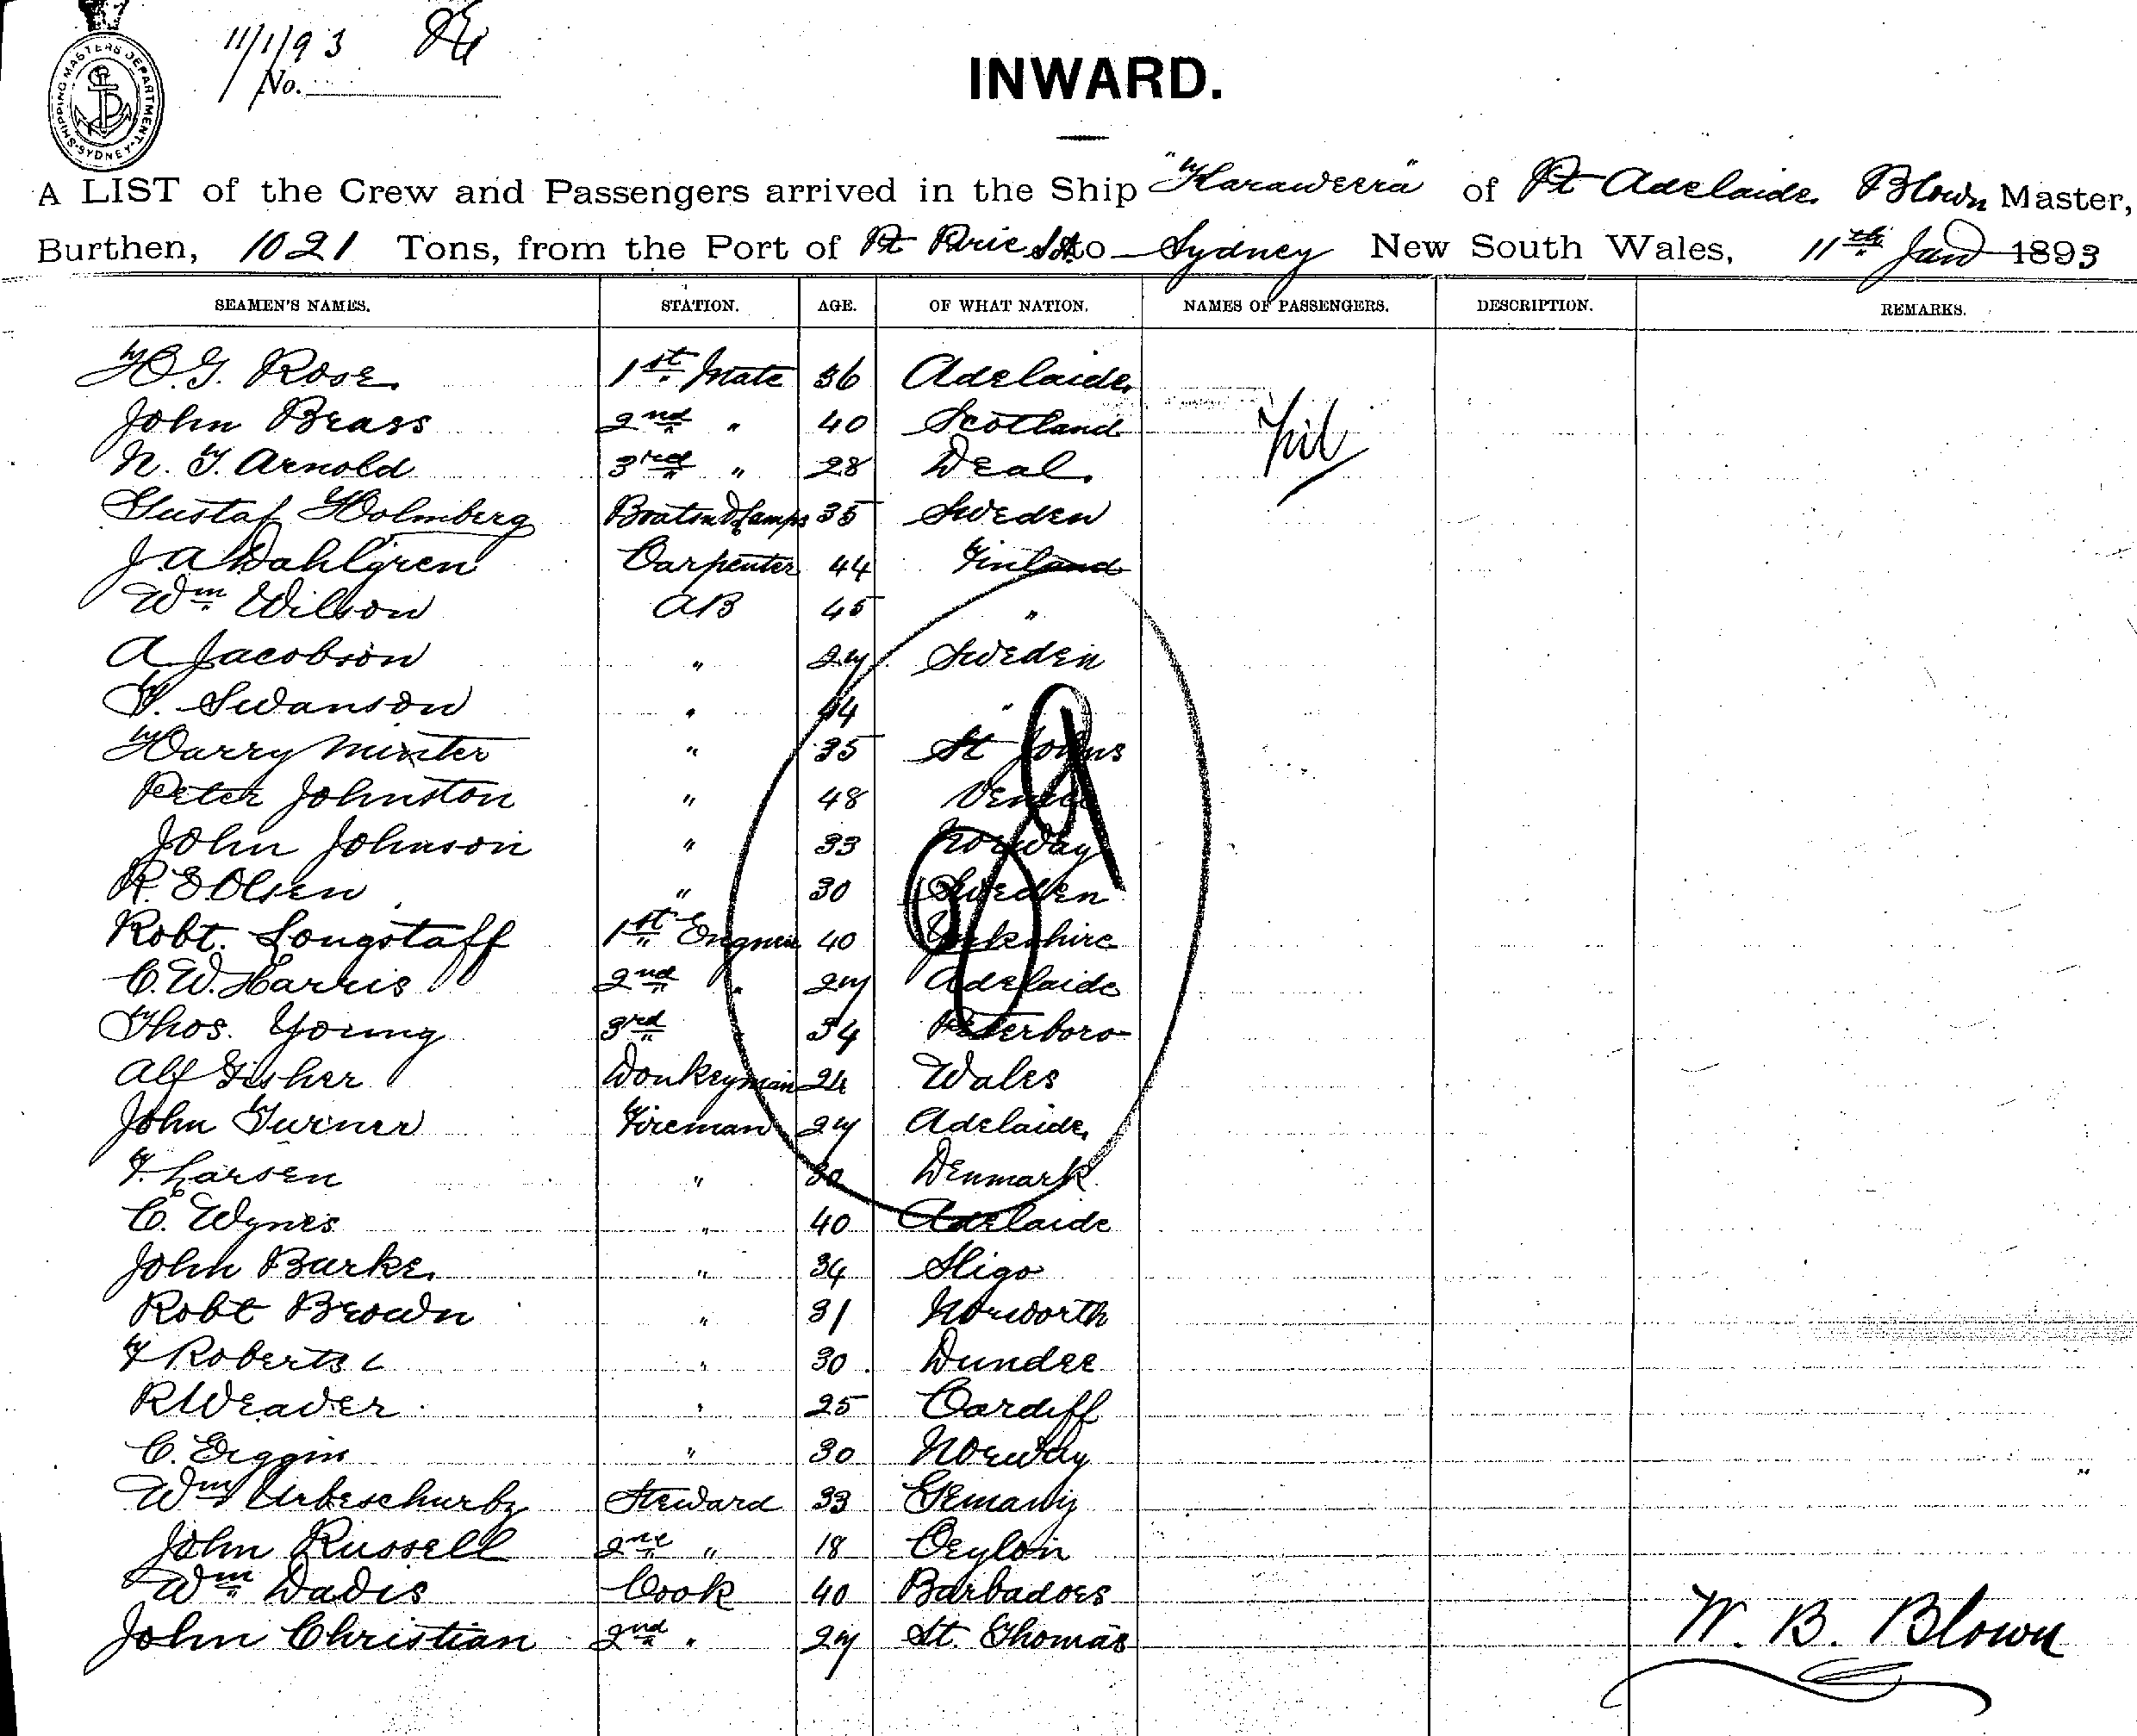 11/1/93
No.
SHIPPING MASTERS DEPARTMENT SYDNEY
INWARD.
A LIST of the Crew and Passengers arrived in the Ship "Karaweera" of Pt Adelaide. Blown Master,
Burthen, 1021 Tons, from the Port of Pt Pirie SA to Sydney New South Wales, 11th Jan 1893
SEAMEN'S NAMES. STATION. AGE. OF WHAT NATION. NAMES OF PASSENGERS. DESCRIPTION. REMARKS.
H. G. Rose. 1st Mate 36 Adelaide. Nil
John Brass 2nd " 40 Scotland
N. T. Arnold 3rd " 28 Deal.
Gustaf Holmberg Boatsn & Lamps 35 Sweden
J. A Dahlgren Carpenter 44 Finland
Wm Wilson AB 45 "
A Jacobson " 27 Sweden
F. Swanson " 44 "
Harry Minter " 35 St Johns
Peter Johnston " 48 Venice
John Johnson " 33 Norway
R. E Olsen " 30 Sweden
Robt. Longstaff 1st Engineer 40 Yorkshire
C. W. Harris 2nd " 27 Adelaide
Thos. Young 3rd " 34 Peterboro
Alf Fisher Donkeyman 24 Wales
John Turner Fireman 27 Adelaide.
F. Larsen " 30 Denmark
C. Wynes " 40 Adelaide
John Burke. " 34 Sligo
Robt Brown " 31 Norworth
F Roberts " 30 Dundee
R Weaver " 25 Cardiff
C. " 30 Norway
Wm Steward 33 Gemany
John Russell 2nd " 18 Ceylon
Wm Davis Cook 40 Barbadoes
John Christian 2nd " 27 St. Thomas
W. B. Blown